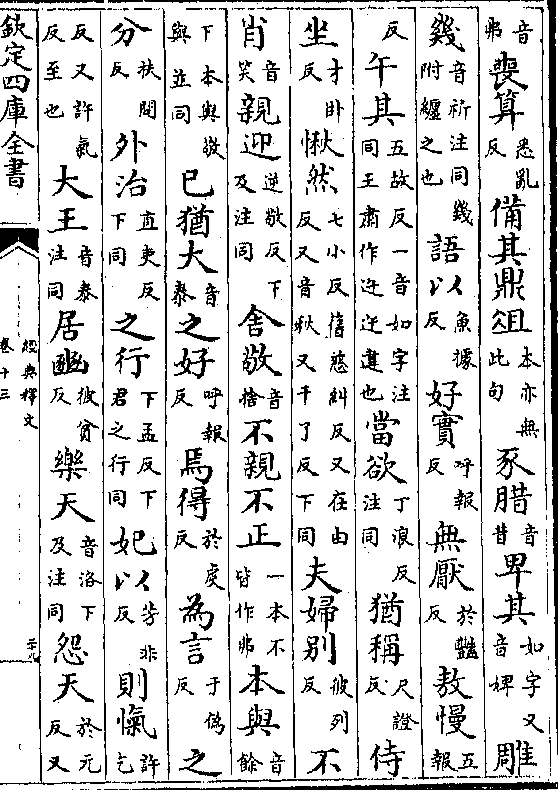 音弗喪算悉亂反備其鼎俎本亦無此句豕腊音昔卑其如字又音裨雕
幾音祈注同幾附纏之也語以魚據反好實呼報反無厭於豔反敖慢五報
反午其五故反一音如字注同王肅作迕迕違也當欲丁浪反注同猶稱尺證反侍
坐才卧反愀然七小反舊慈糾反又在由反又音秋又千了反下同夫婦別彼列反不
肖音笑親迎逆敬反下及注同舍敬音捨不親不正一本不皆作弗本與音餘
下本與敬與並同已猶大音泰之好呼報反焉得於虔反為言于偽反之
分扶問反外治直吏反下同之行下孟反下君之行同妃以芳非反則愾許乞
反又許氣反至也大王音泰注同居豳彼貧反樂天音洛下及注同怨天於元反又
欽定四庫全書
經典釋文
卷十三